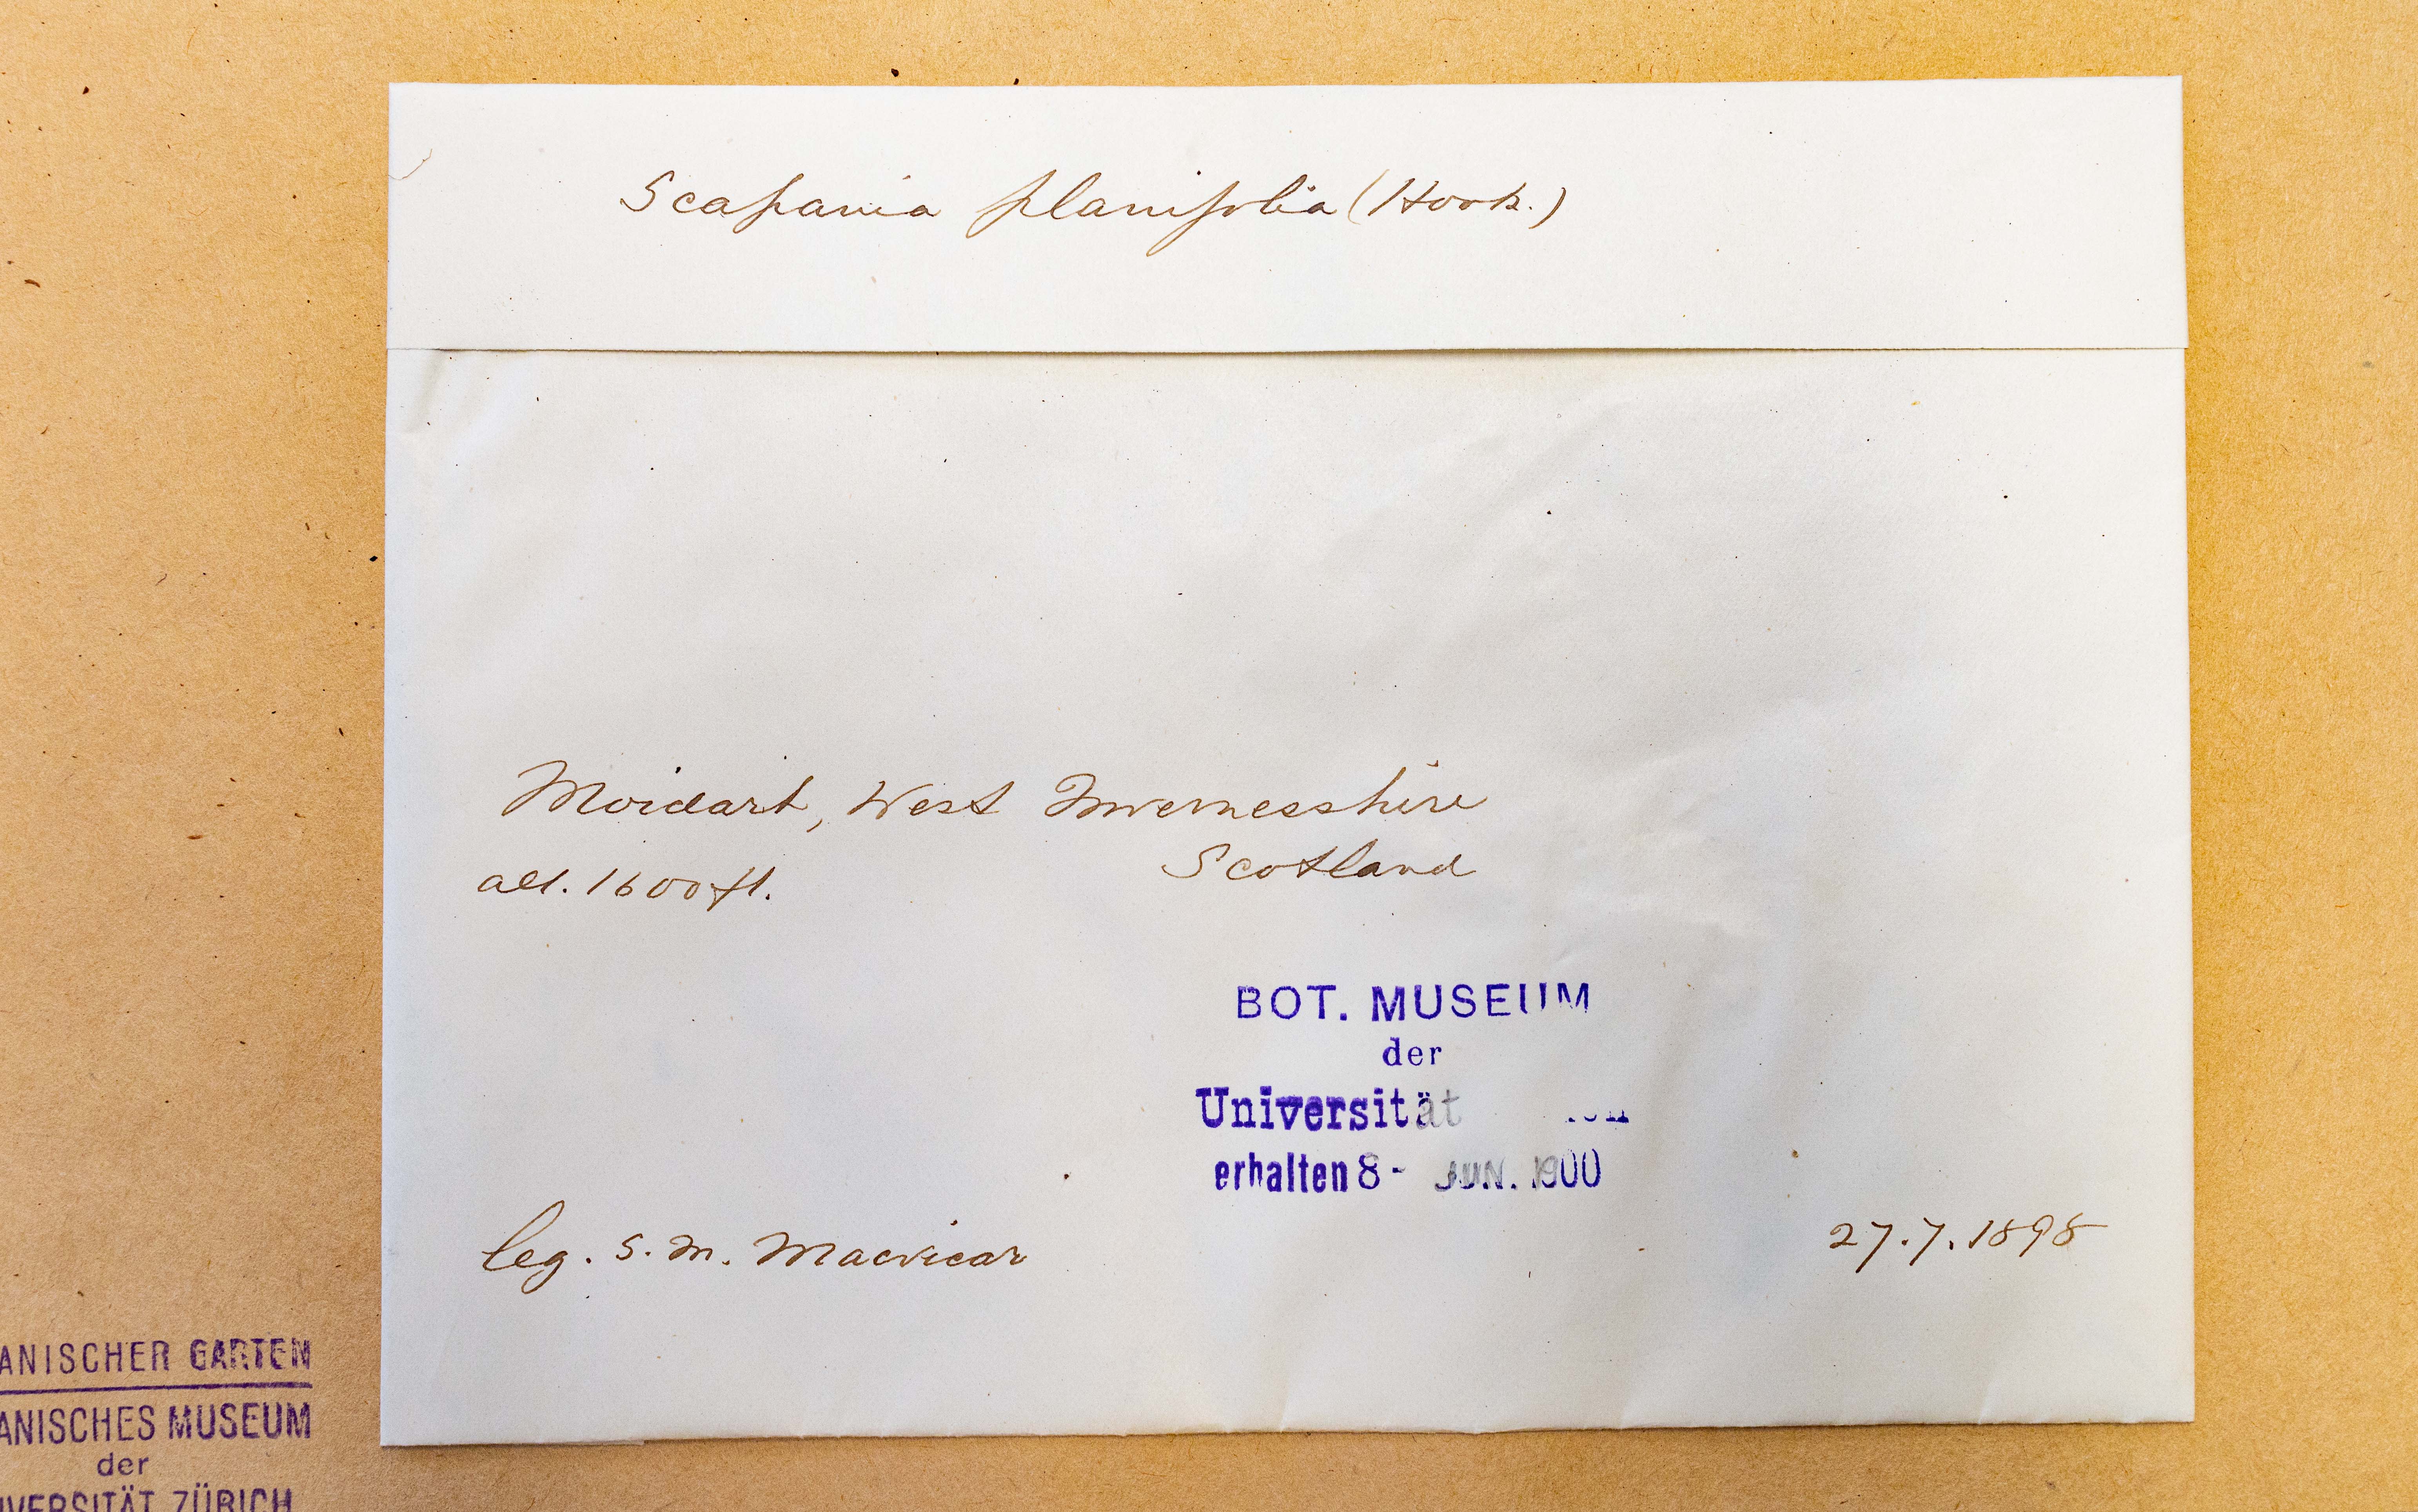 Scapania planifolia (Hook.)
Moidart, West Invernesshire
Scotland
alt. 1600 ft.
BOT. MUSEUM
der
Universität
erhalten 8 - JUN. 1900
leg. S. M. Macvicar
27.7.1898
ANISCHER GARTEN
ANISCHES MUSEUM
der
IVERSITÄT ZÜRICH